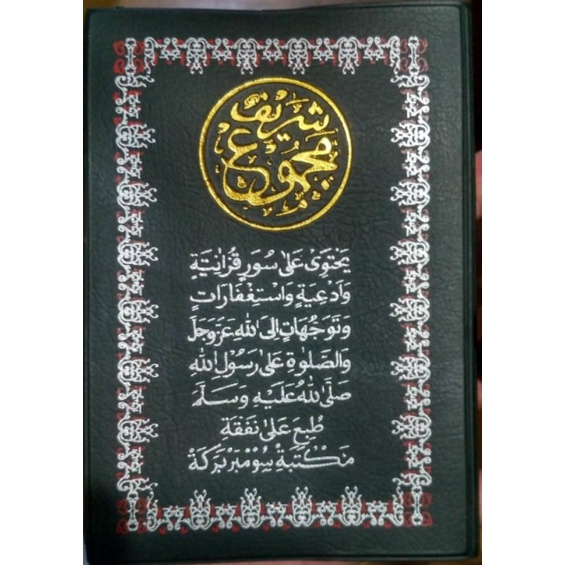 مجموع شريف
يَحْتَوِىْ عَلٰى سُوَرٍ قُرْاٰنِيَّةٍ
وَاَدْعِيَةٍ وَاسْتِغْفَارَاتٍ
وَتَوَجُّهَاتٍ اِلَى اللهِ عَزَّوَجَلَّ
وَالصَّلٰوةِ عَلٰى رَسُوْلِ اللهِ
صَلَّى اللهُ عَلَيْهِ وَسَلَّمَ
طُبِعَ عَلٰى نَفَقَةِ
مَكْتَبَةْ سُوْمْبَرْ بَرَكَةْ